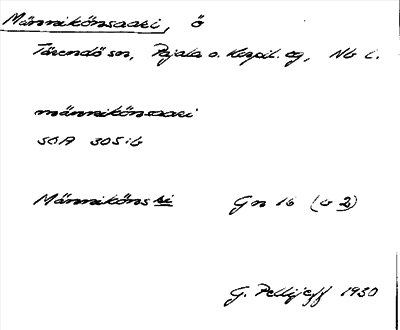 Männikönsaari, ö
Tärendö sn, Pajala o. Korpil. tg, Nb l.
männikönsaari
SOA 305:6
Männikönski Gn 16 (b 2)
G. Pellijeff 1930